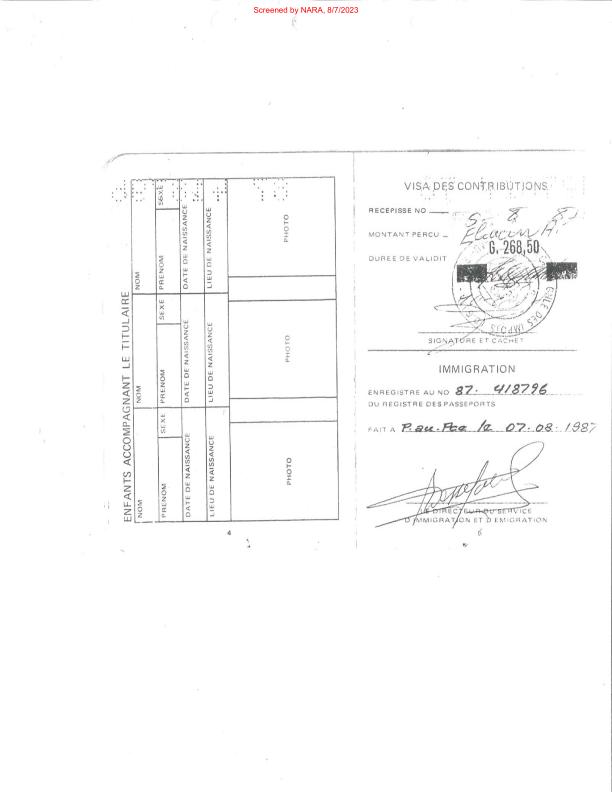 Screened by NARA, 8/7/2023
ENFANTS ACCOMPAGNANT LE TITULAIRE
NOM
PRENOM
SEXE
DATE DE NAISSANCE
LIEU DE NAISSANCE
PHOTO
NOM
PRENOM
SEXE
DATE DE NAISSANCE
LIEU DE NAISSANCE
PHOTO
NOM
PRENOM
SEXE
DATE DE NAISSANCE
LIEU DE NAISSANCE
PHOTO
4
VISA DES CONTRIBUTIONS
RECEPISSE NO
MONTANT PERCU
G. 268,50
DUREE DE VALIDIT
DES IMPOTS
SIGNATURE ET CACHET
IMMIGRATION
ENREGISTRE AU NO 87. 418796
DU REGISTRE DES PASSEPORTS
FAIT A P.au.Pce le 07.08.1987
LE DIRECTEUR DU SERVICE
D'IMMIGRATION ET D'EMIGRATION
6